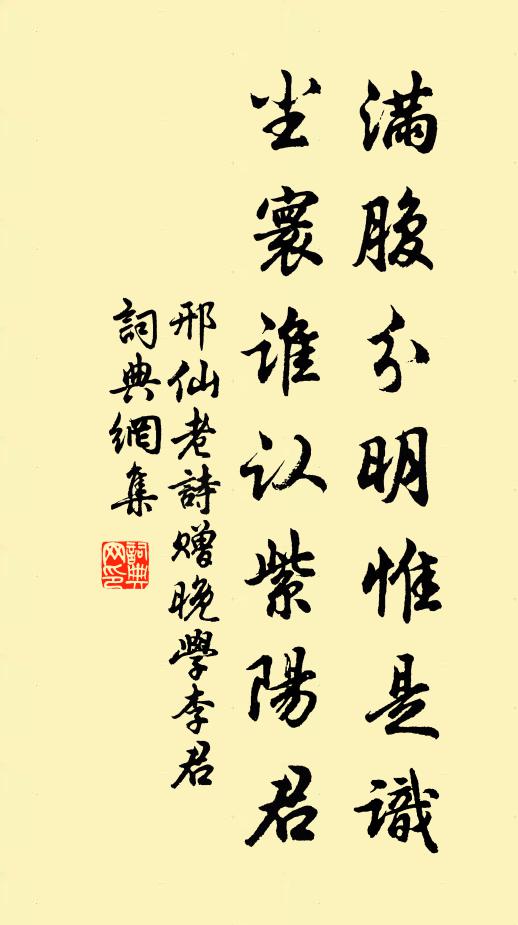 满腹分明惟是識
尘寰谁认紫陽君
邢仙老詩赠晚學李君
詞典網集
詞典网印